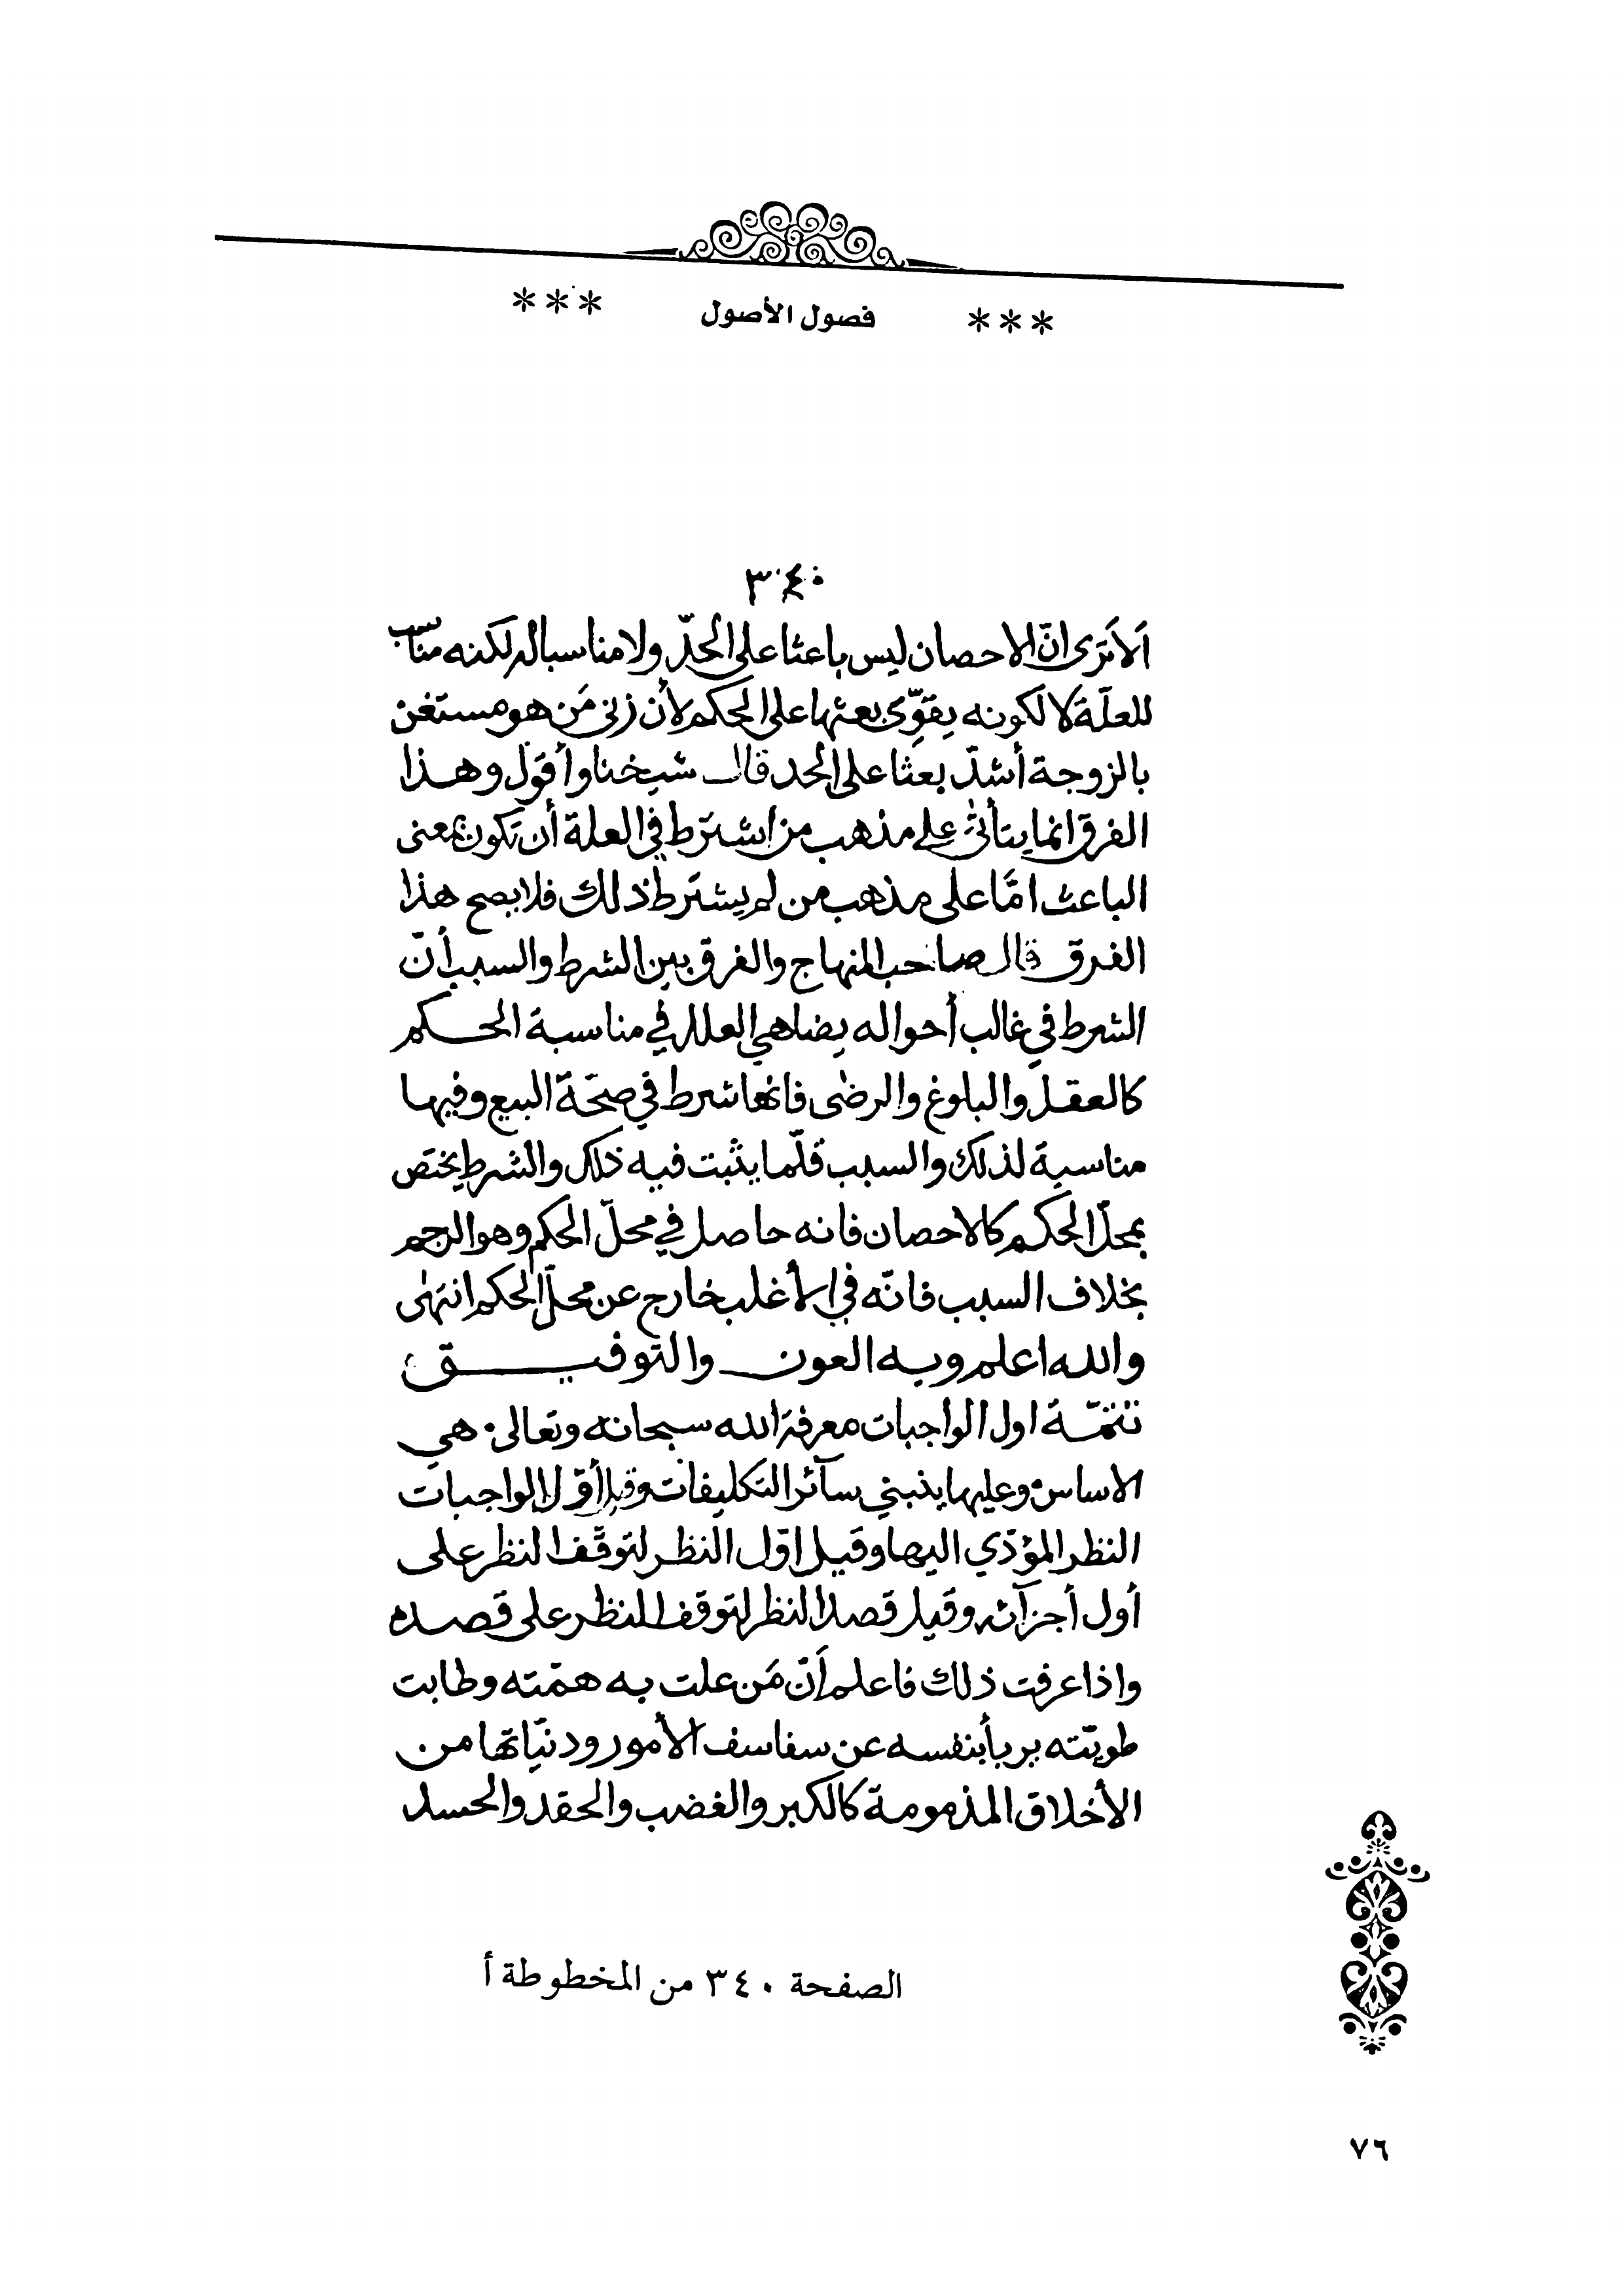 *** فصول الأصول ***
٣٤٠
أَلَا تَرى انّ الاحصان ليس باعثا على الحدّ ولا مناسبا له لكنه مناسب
للعلّة لا لكونه يقوِّى بعثها على الحكم لأن زنى مَن هو مستغن
بالزوجة أشدّ بعثا على الحد قال شيخنا وأقول وهذا
الفرق انما يتأتى على مذهب من اشترط في العلة أن تكون بمعنى
الباعث امَّا على مذهب من لم يشترط ذلك فلا يصح هذا
الفرق قال صاحب المنهاج والفرق بين الشرط والسبب أنّ
الشرط في غالب أحواله يضاهي العلل في مناسبة الحكم
كالعقل والبلوغ والرضى فانها شرط في صحّة البيع وفيها
مناسبة لذلك والسبب قلّما يثبت فيه ذلك والشرط يختص
بمحلّ الحكم كالاحصان فانه حاصل في محلّ الحكم وهو الرجم
بخلاف السبب فانّه في الأغلب خارج عن محلّ الحكم انتهى
والله اعلم وبه العون والتوفيق
تتمّة اول الواجبات معرفة الله سبحانه وتعالى هي
الاساس وعليها ينبني سآئر التكليفات وقيل أوّل الواجبات
النظر المؤدّي اليها وقيل اوّل النظر لتوقّف النظر على
أول أجزآئه وقيل قصد النظر لتوقف النظر على قصده
واذا عرفت ذلك فاعلم أَنّ مَن علت به همّته وطابت
طويّته يربأ بنفسه عن سفاسف الأمور ودنيّاتها من
الأخلاق المذمومة كالكبر والغضب والحقد والحسد
الصفحة ٣٤٠ من المخطوطة أ
٧٦